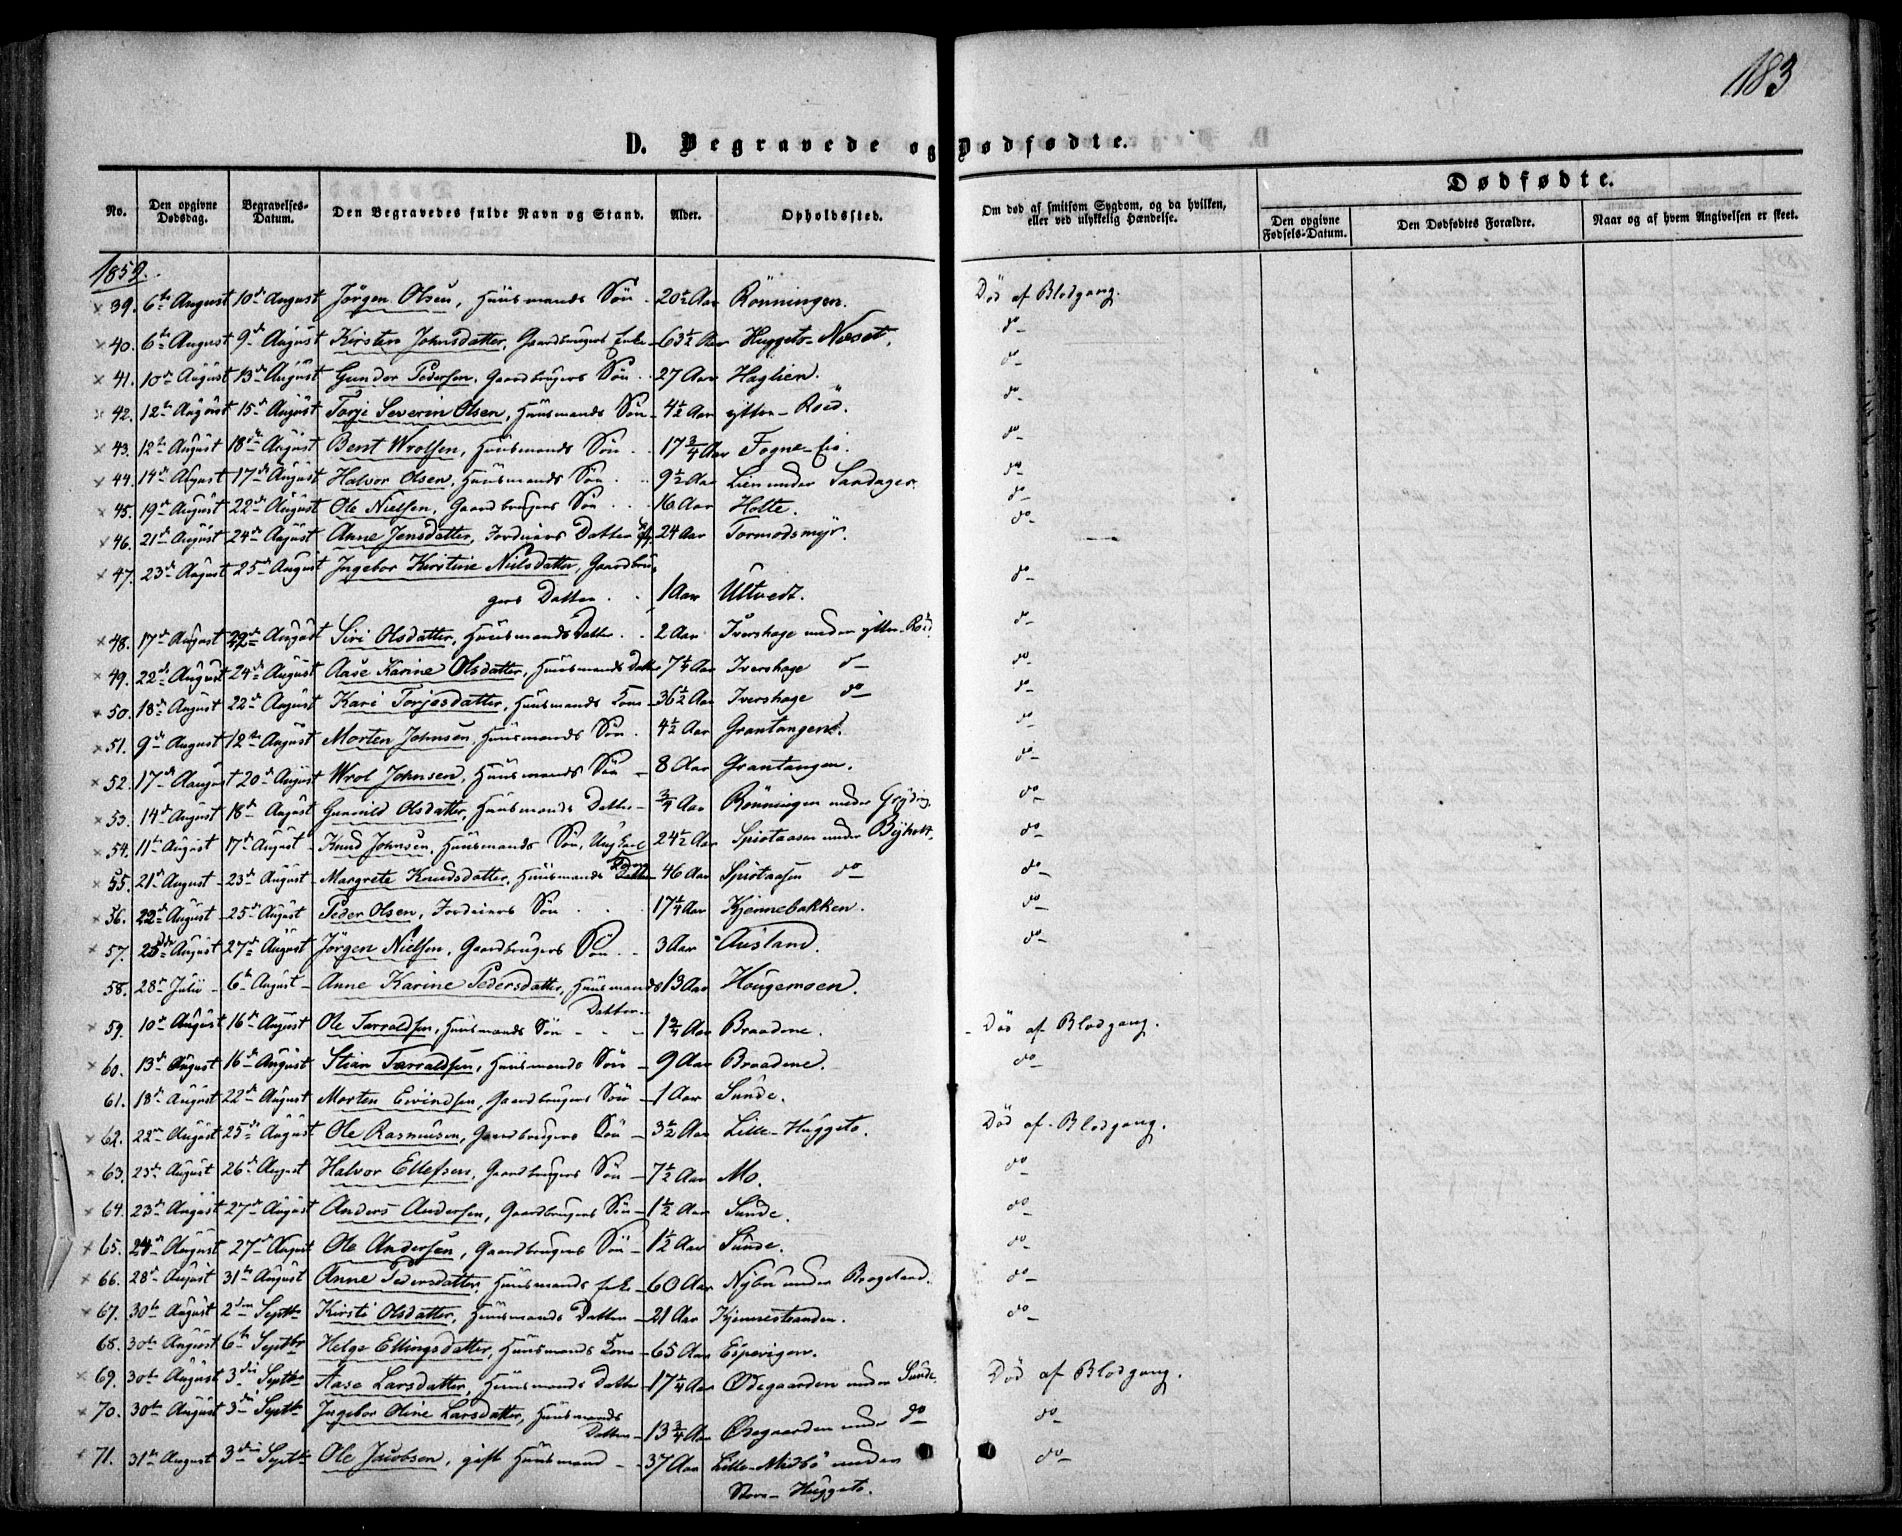 183
D. Begravede og Dødfødte.
No. Den opgivne Dødsdag. Begravelses-Datum. Den Begravedes fulde Navn og Stand. Alder. Opholdssted. Om død af smitsom Sygdom, og da hvilken, eller ved ulykkelig Hændelse. Dødfødte. Den opgivne Fødsels-Datum. Den Dødfødtes Forældre. Naar og af hvem Angivelsen er skeet.
1859.
39. 6te August 10de August Jørgen Olsen, Huusmands Søn 20½ Aar Rönningen. Död af Blodgang.
40. 6te August 9de August Kirsten Johnsdatter, Gaardbrugers Enke 63½ Aar Huggeto-Næset. do
41. 10de August 13de August Gunder Pedersen, Gaardbrugers Søn 27 Aar Haglien. do
42. 12te August 15de August Torje Severin Olsen, Huusmands Søn 4½ Aar ytter-Röed. do
43. 12te August 18de August Bent Wrolsen, Huusmands Søn 17¾ Aar Fogne-Eie. do
44. 14de August 17de August Halvor Olsen, Huusmands Søn 9½ Aar Lien under Sandager. do
45. 19de August 22de August Ole Nielsen, Gaardbrugers Søn 16 Aar Holte. do
46. 21de August 24de August Anne Jensdatter, Forduiers Datter 24 Aar Tormodsmyr. do
47. 23de August 25de August Ingebor Kirstine Nielsdatter, Gaardbru-
gers Datter 1 Aar Ultvedt. do
48. 17de August 22de August Siri Olsdatter, Huusmands Datter 2 Aar Ivershage under ytter-Röed. do
49. 22de August 24de August Aase Karine Olsdatter, Huusmands Datter 7¼ Aar Ivershage do do
50. 18de August 22de August Kari Torjesdatter, Huusmands Kone 36½ Aar Ivershage do do
51. 9de August 12te August Morten Johnsen, Huusmands Søn 4½ Aar Grantangen. do
52. 17de August 20de August Wrol Johnsen, Huusmands Søn 8 Aar Grantangen. do
53. 14de August 18de August Gunild Olsdatter, Huusmands Datter ¾ Aar Rönningen under Gryting. do
54. 11te August 17de August Knud Johnsen, Huusmands Søn, Ungkarl 24½ Aar Spiotaasen under Byholt. do
55. 21de August 23de August Margrete Knudsdatter, Huusmands Kone 46 Aar Spiotaasen do do
56. 22de August 25de August Peder Olsen, Forduiers Søn 17¼ Aar Kjennebakken. do
57. 25de August 27de August Jørgen Nielsen, Gaardbrugers Søn 3 Aar Ausland. do
58. 28de Julii 6te August Anne Karine Pedersdatter, Huusmands 13 Aar Hougemoen.
Datter
59. 10de August 16de August Ole Tarraldsen, Huusmands Søn 1¾ Aar Braadene. Död af Blodgang.
60. 13de August 16de August Stian Tarraldsen, Huusmands Søn 9 Aar Braadene. do
61. 18de August 22de August Morten Eivindsen, Gaardbrugers Søn 1 Aar Sunde.
62. 22de August 25de August Ole Rasmusen, Gaardbrugers Søn 3½ Aar Lille-Huggeto. Död af Blodgang.
63. 23de August 26de August Halvor Ellefsen, Gaardbrugers Søn 7½ Aar Mo. do
64. 23de August 27de August Anders Andersen, Gaardbrugers Søn 1½ Aar Sunde. do
65. 24de August 27de August Ole Andersen, Gaardbrugers Søn 1½ Aar Sunde. do
66. 28de August 31te August Anne Pedersdatter, Huusmands Enke 60 Aar Nybu under Roogeland. do
67. 30te August 2den Septbr Kirsti Olsdatter, Huusmands Datter 21 Aar Kjennestranden. do
68. 30te August 6te Septbr Helge Ellingsdatter, Huusmands Kone 65 Aar Espevigen.
69. 30te August 3die Septbr Aase Larsdatter, Huusmands Datter 17¼ Aar Ødegaarden under Sunde. Död af Blodgang.
70. 30te August 3die Septbr Ingebor Oline Larsdatter, Huusmands
Datter 13¾ Aar Ødegaarden under do do
71. 31te August 3die Septbr Ole Jacobsen, gift Huusmand 37 Aar Lille-Midbö under do
Store-Huggeto.